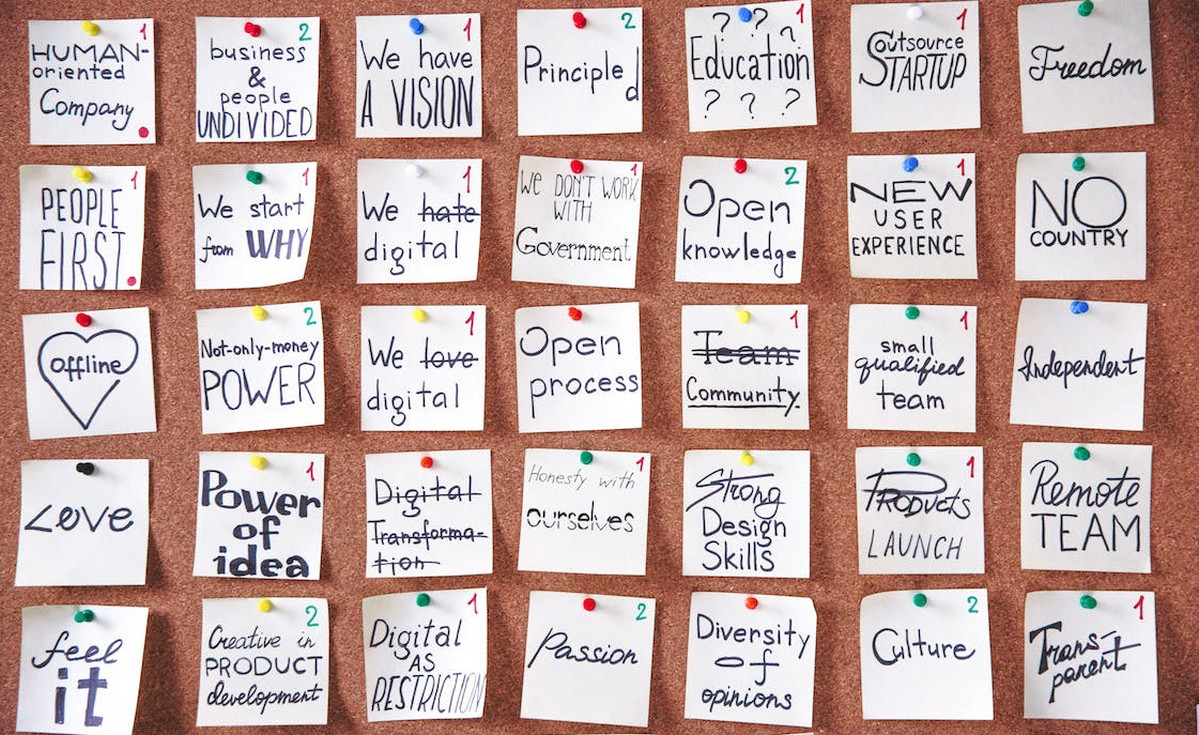 HUMAN- 1
oriented
Company
business 2
&
people
UNDIVIDED
We have 1
A VISION
Principled 2
? ? ? 1
Education
? ? ?
Outsource 1
STARTUP
Freedom
PEOPLE 1
FIRST
We start 1
from WHY
We hate 1
digital
We DON'T WORK 1
WITH
Government
Open 2
knowledge
NEW 1
USER
EXPERIENCE
NO
COUNTRY
offline
Not-only-money 2
POWER
We love 1
digital
Open
process
Team 1
Community.
small 1
qualified
team
Independent
Love
Power 1
of
idea
Digital
Transforma-
tion
Honesty with 1
ourselves
Strong
Design
Skills
Products 1
LAUNCH
Remote
TEAM
feel
it
Creative in 2
PRODUCT
development
Digital 1
AS
RESTRICTION
Passion 2
Diversity
of
opinions
Culture 2
Trans- 1
parent